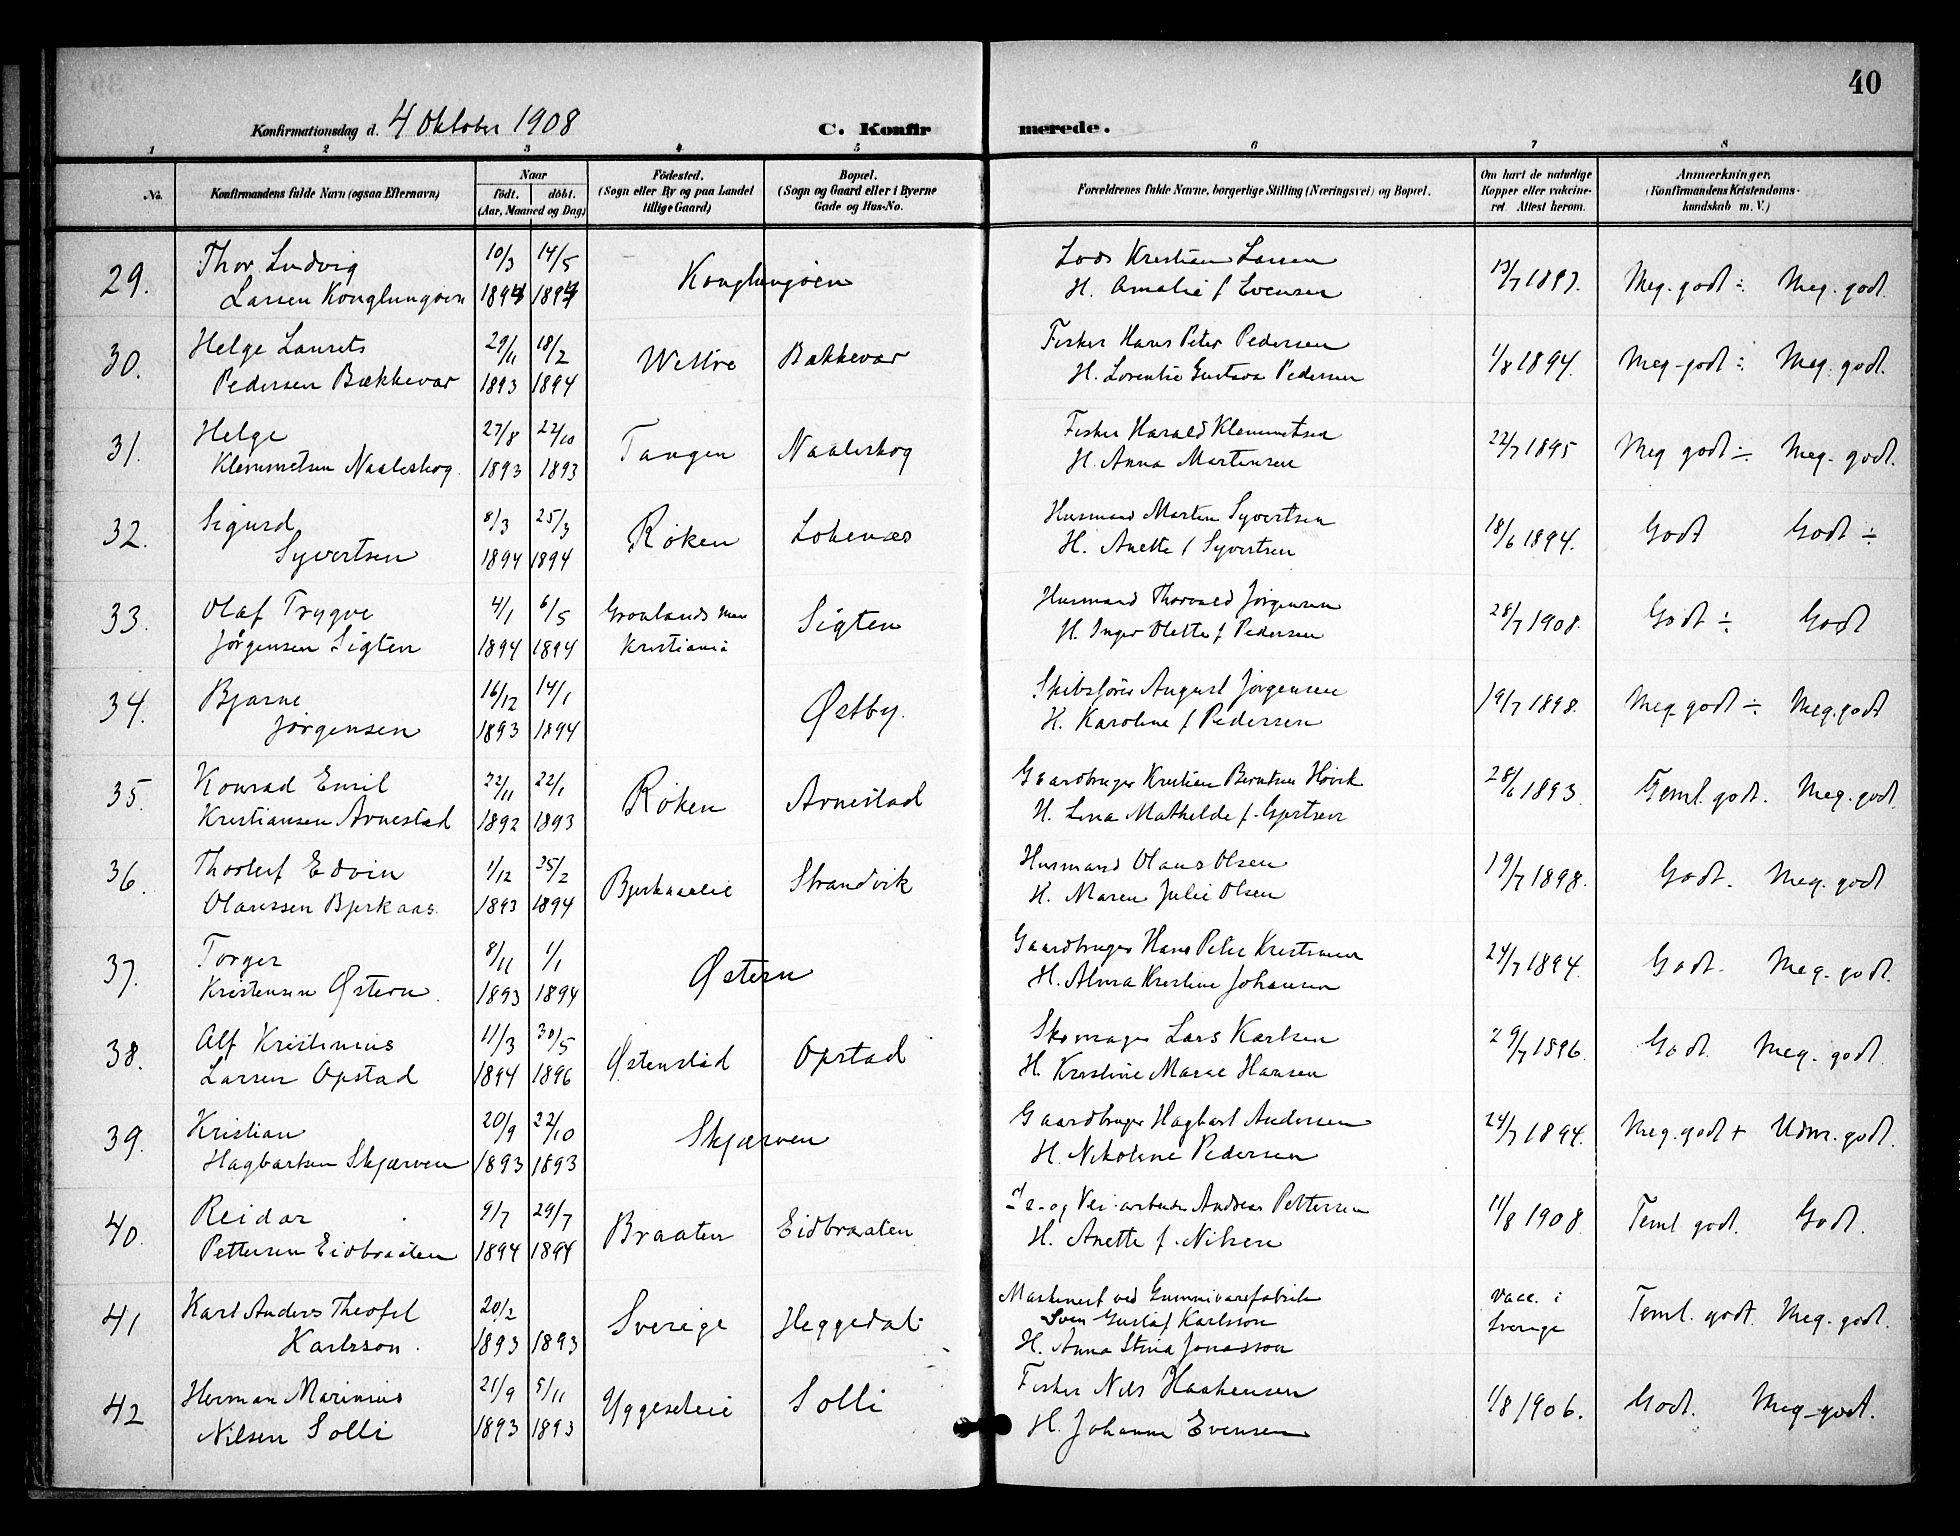 40
Konfirmationsdag d. 4 Oktober 1908 C. Konfir merede.
1 2 3 4 5 6 7 8
No. Konfirmandens fulde Navn (ogsaa Efternavn) Naar født. døbt. (Aar, Maaned og Dag) Fødested. (Sogn eller By og paa Landet tillige Gaard) Bopæl. (Sogn og Gaard eller i Byerne Gade og Hus-No. Forældrenes fulde Navne, borgerlige Stilling (Næringsvei) og Bopæl. Om havt de naturlige Kopper eller vakcineret. Attest herom. Anmærkninger. (Konfirmandens Kristendomskundskab m. V.)
29. Thor Ludvig 10/3 14/5 Konglungøen Lods Kristian Larsen 13/7 1897. Meg. godt ÷ Meg. godt.
Larsen Konglungøen 1894 1894 H. Amalie f Evensen
30. Helge Laurets 29/11 18/2 Wettre Bakkevar Fisker Hans Peter Pedersen 1/8 1894. Meg. godt ÷ Meg. godt.
Pedersen Bækkevar 1893 1894 H. Lorentse Gustava Pedersen
31. Helge 27/8 22/10 Tangen Naaleskog Fisker Harald Klemmetsen 22/7 1895 Meg godt ÷ Meg. godt.
Klemmetsen Naaleskog. 1893 1893 H. Anna Martinsen
32. Sigurd 8/3 25/3 Röken Lokenæs Husmand Martin Syvertsen 18/6 1894. Godt Godt ÷
Syvertsen 1894 1894 H. Anette f Syvertsen
33. Olaf Trygve 4/1 6/5 Grønlands men Sigten Husmand Thorvald Jörgensen 28/7 1908. Godt ÷ Godt
Jörgensen Sigten 1894 1894 Kristiania H. Inger Olette f. Pedersen
34. Bjarne 16/12 14/1 Østby. Skibsförer August Jörgensen 19/7 1898. Meg. godt ÷ Meg. godt
Jörgensen 1893 1894 H. Karoline f Pedersen
35. Konrad Emil 22/11 22/1 Röken Arnestad Gaardbruger Kristian Berntsen Hövik 28/6 1893 Teml. godt. Meg. godt.
Kristiansen Arnestad 1892 1893 H. Lina Mathilde f. Gjertsen
36. Thorleif Edvin 1/12 25/2 Strandvik Husmand Olaus Olsen 19/7 1898. Godt. Meg. godt
Olaussen Bjerkaas. 1893 1894 H. Maren Julie Olsen
37. Torger 8/11 1/1 Østern Gaardbruger Hans Peter Kristensen 24/7 1894. Godt. Meg. godt.
Kristensen Østern. 1893 1894 H. Alma Kristine Johansen
38. Alf Kristinius 11/3 30/5 Østenstad Opstad Skomager Lars Karlsen 29/7 1896. Godt. Meg. godt.
Larsen Opstad 1894 1896 H. Kristine Marie Hansen
39. Kristian 20/9 22/10 Skjærven Gaardbruger Hagbart Andersen 24/7 1894. Meg. godt + Udm. godt.
Hagbartsen Skjærven 1893 1893 H. Nikoline Pedersen
40. Reidar 9/7 29/7 Braaten Eidbraaten og Vei-arbeider Andreas Pettersen 11/8 1908 Teml godt. Godt.
Pettersen Eidbraaten 1894 1894 H. Anette f. Nilsen
41 Karl Anders Theofil 20/2 Sverige Heggedal Maskinist ved Gummivarefabrik Vacc. i Teml. godt. Meg. godt.
Karlsson. 1893 1893 Sven Gustaf Karlsson Sverige
H. Anna Stina Jonasson
42 Herman Marinius 21/9 5/11 Yggeseteie Solli Fisker Nils Haakensen 1/8 1906. Godt. Meg. godt.
Nilsen Solli 1893 1893 H. Johanne Evensen